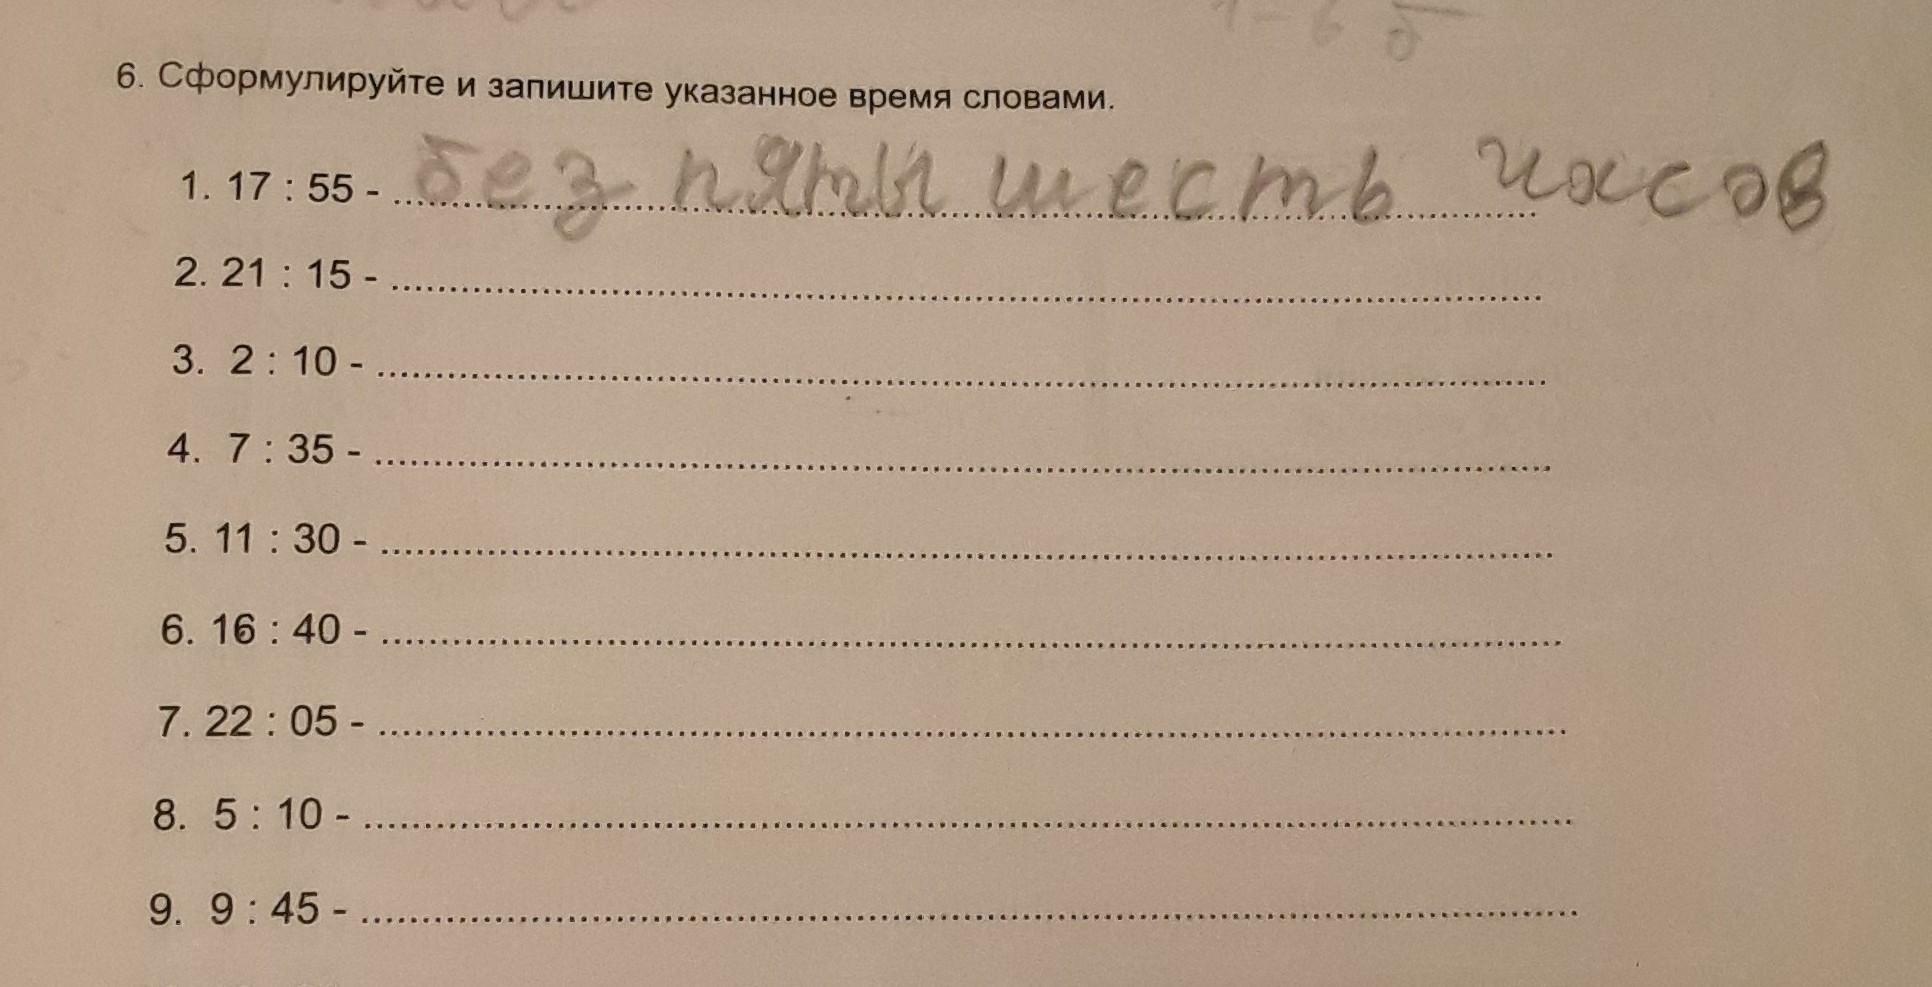 1 - 6 б
6. Сформулируйте и запишите указанное время словами.
1. 17 : 55 - без пяты шесть часов
2. 21 : 15 -
3. 2 : 10 -
4. 7 : 35 -
5. 11 : 30 -
6. 16 : 40 -
7. 22 : 05 -
8. 5 : 10 -
9. 9 : 45 -